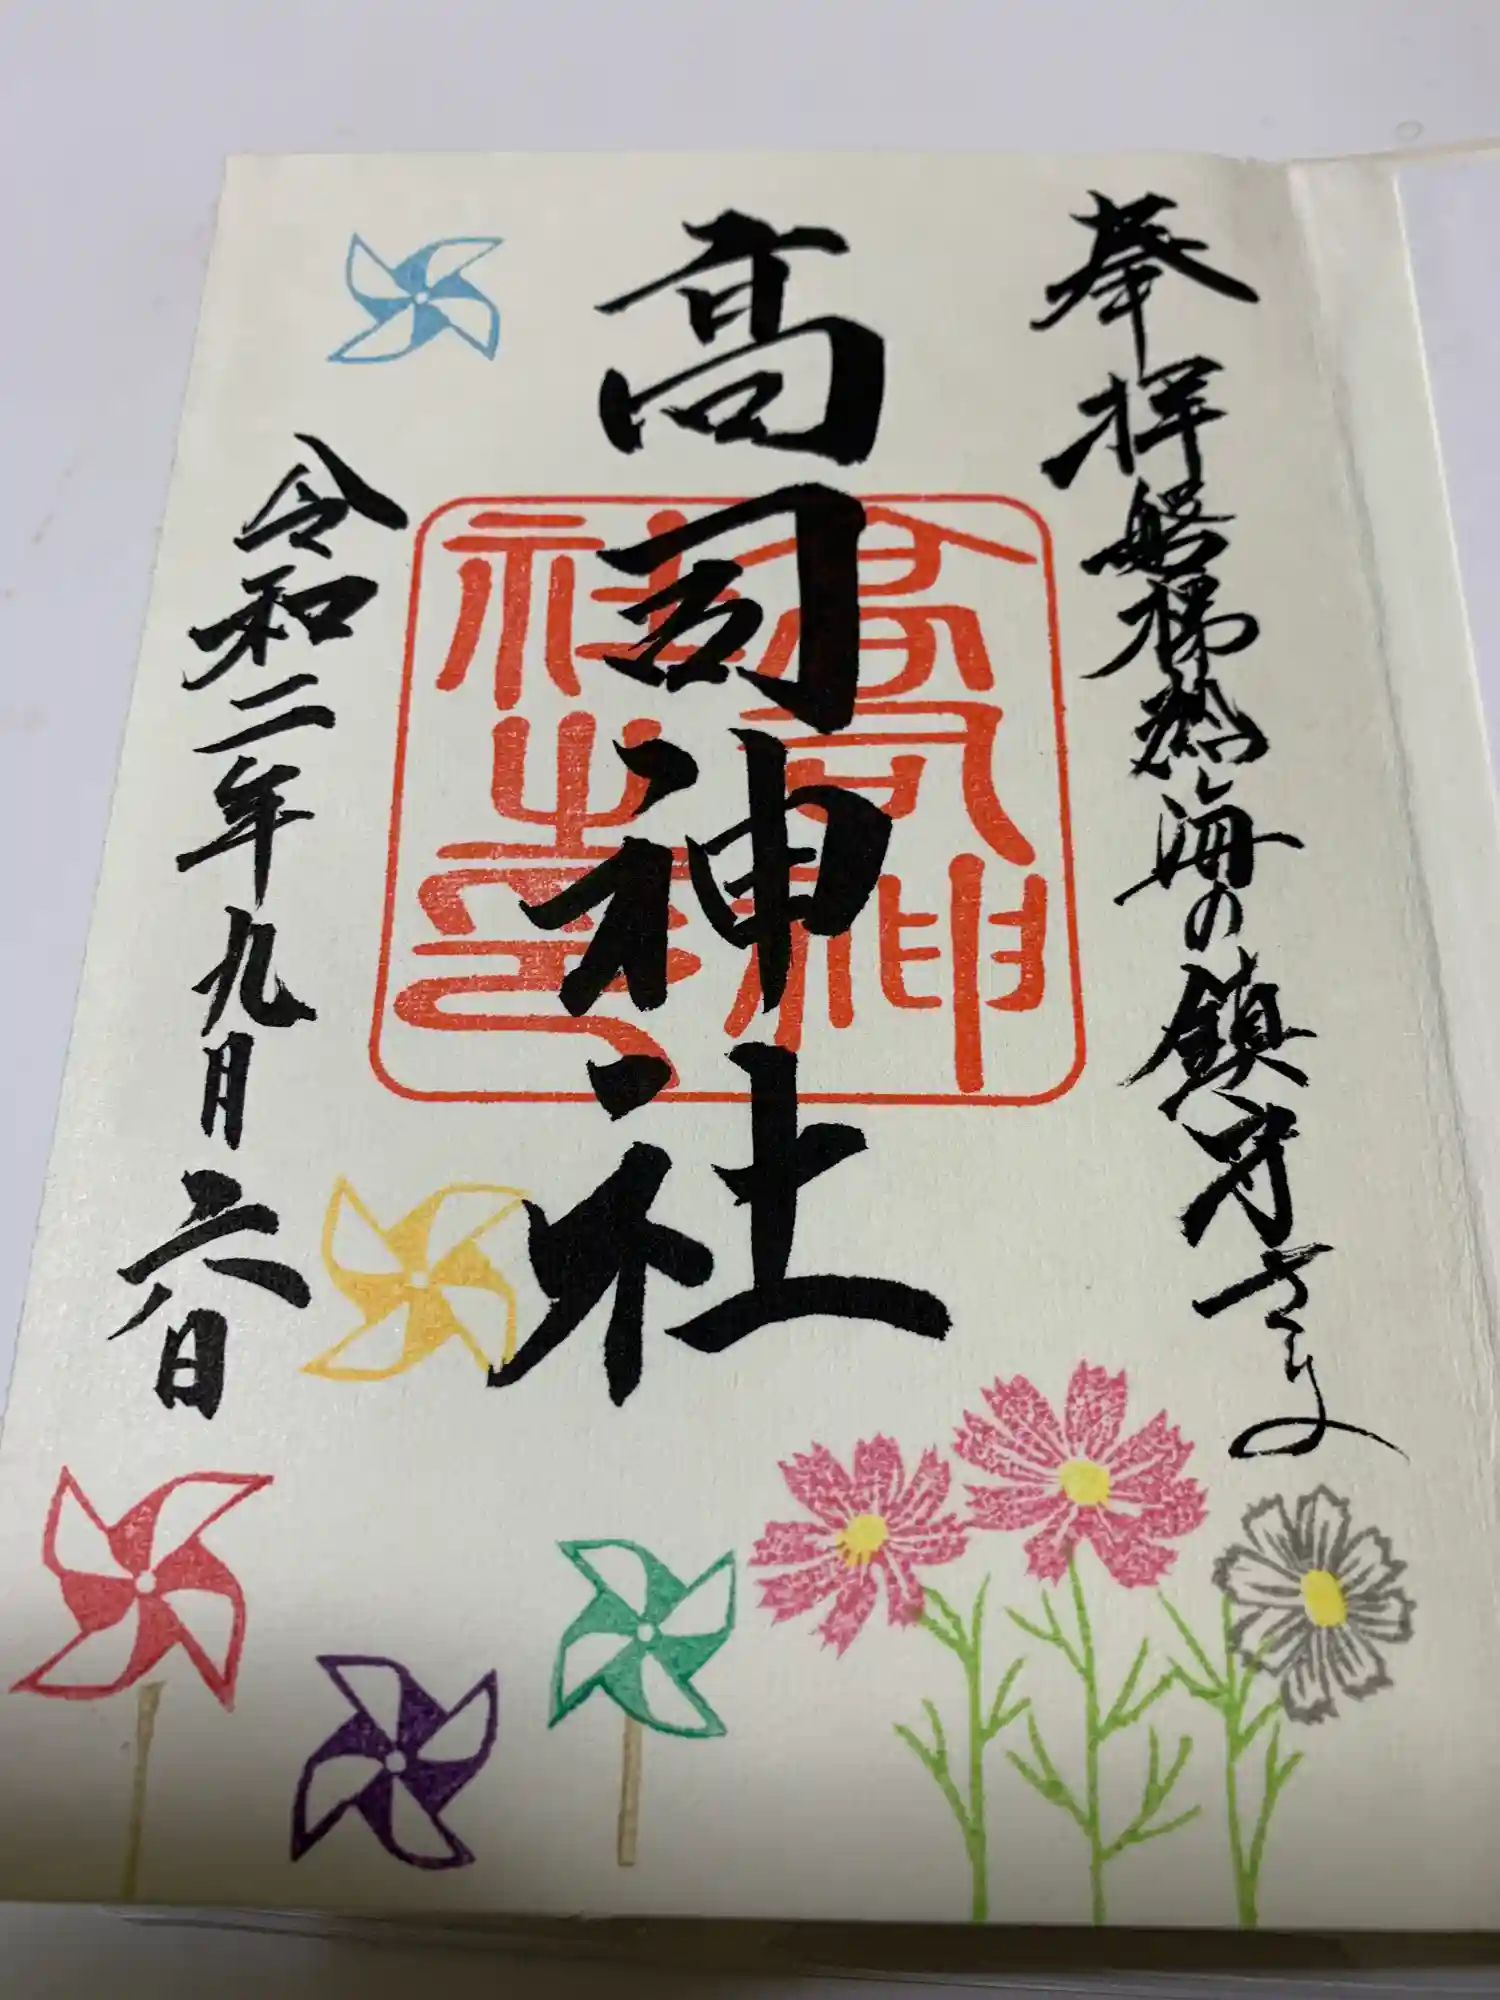 奉拝磐梯熱海の鎮守さま
高司神社
高司神
社之印
令和二年九月六日